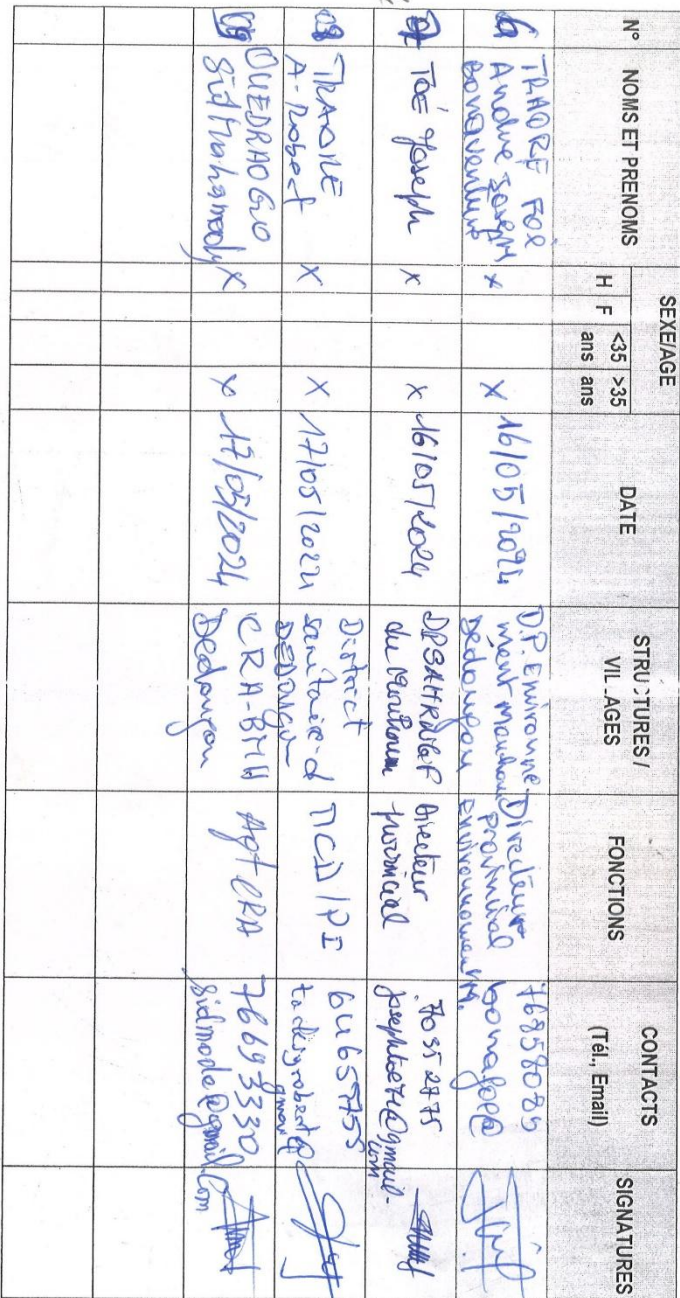 N° NOMS ET PRENOMS SEXE/AGE DATE STRUCTURES / VILLAGES FONCTIONS CONTACTS (Tél., Email) SIGNATURES
H F <35 ans >35 ans
TRAORE FOE
Andre Joseph
Bonaventure
x x 16/05/2024
D.P. Environne-
ment Mouhoun
Dédougou
Directeur
provincial
Environnement M.
76858089
bonafoe@
07 TOE Joseph x x 16/05/2024
du Mouhoun
Directeur
provincial
70352775
josephtoe74@gmail.
com
08 TRAORE
A-Robert
x x 17/05/2024
District
sanitaire d
DEDougou
MCD/PI
64657755
gmail
09 OUEDRAOGO
Sid Mahamady
x x 17/05/2024
CRA-BMH
Dedougou
Agt CRA
76693330
sidmode@gmail.com